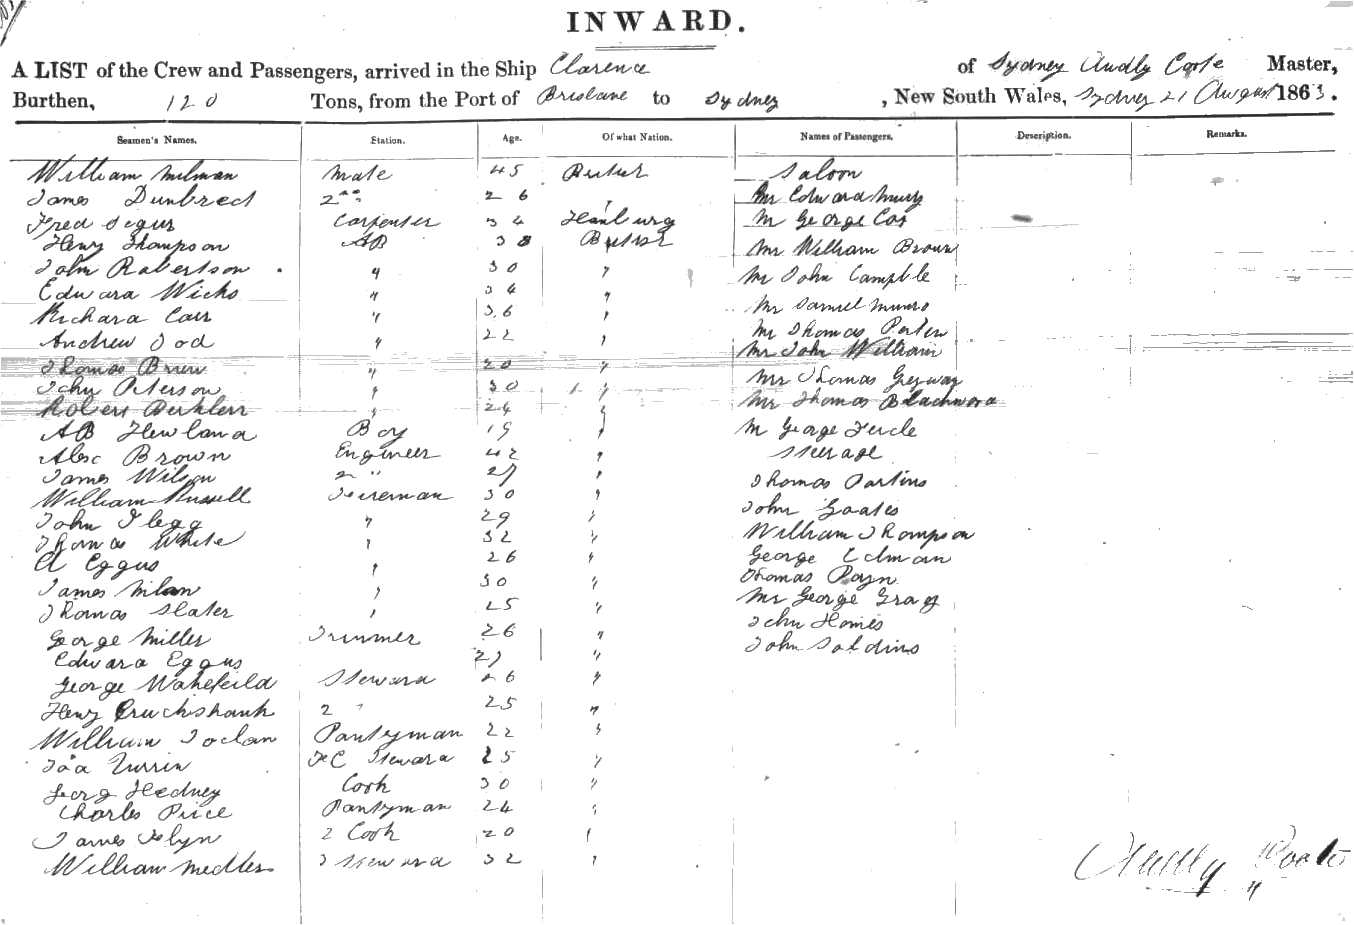 INWARD.
A LIST of the Crew and Passengers, arrived in the Ship Clarence of Sydney Audly Coote Master,
Burthen, 120 Tons, from the Port of Brisbane to Sydney, New South Wales, Sydney 21 August 1863.
Seamen's Names. Station. Age. Of what Nation. Names of Passengers. Description. Remarks.
William Milman Mate 45 British Saloon
James Dunbrect 2nd " 26 " Mr Edward
Fred Segur Carpenter 34 Hamburg Mr George Cox
Henry Thompson AB 38 British Mr William Brown
John Robertson " 30 " Mr John Campble
Edward Wicks " 34 " Mr Samuel Munro
Richard Carr " 36 " Mr Thomas
Andrew Tod " 22 " Mr John William
Thomas " 20 " Mr Thomas
John Peterson " 30 "
Robert " 24 " Mr Thomas
AB Hewland Boy 19 " Mr George
Alex Brown Engineer 42 " Steerage
James Wilson 2 " 27 " Thomas
William Russell Fireman 30 " John Goates
John Flegg " 29 " William Thompson
Thomas White " 32 " George Edman
A Eggus " 26 " Thomas Payn
James Milan " 30 " Mr George Gray
Thomas Slater " 25 " John Homes
George Miller Trimmer 26 " John
Edward Eggus 27 "
George Wakefeild Steward 26 "
Henry Cruckshank 2 " 25 "
William Toclan Pantyman 22 "
Turrin FC Steward 25 "
Georg Hedney Cook 30 "
Charles Price Pantyman 24 "
James 2 Cook 20 "
William Medlers Steward 32 "
Audly Coote